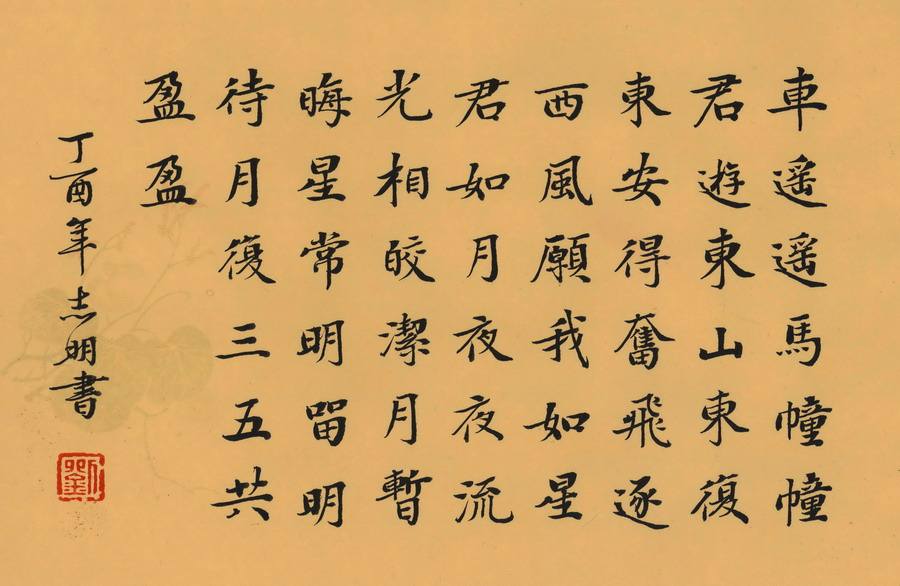 車遥遥馬幢幢
君遊東山東復
東安得奮飛逐
西風願我如星
君如月夜夜流
光相皎潔月暫
晦星常明留明
待月復三五共
盈盈
盈盈
丁酉年志明書
劉